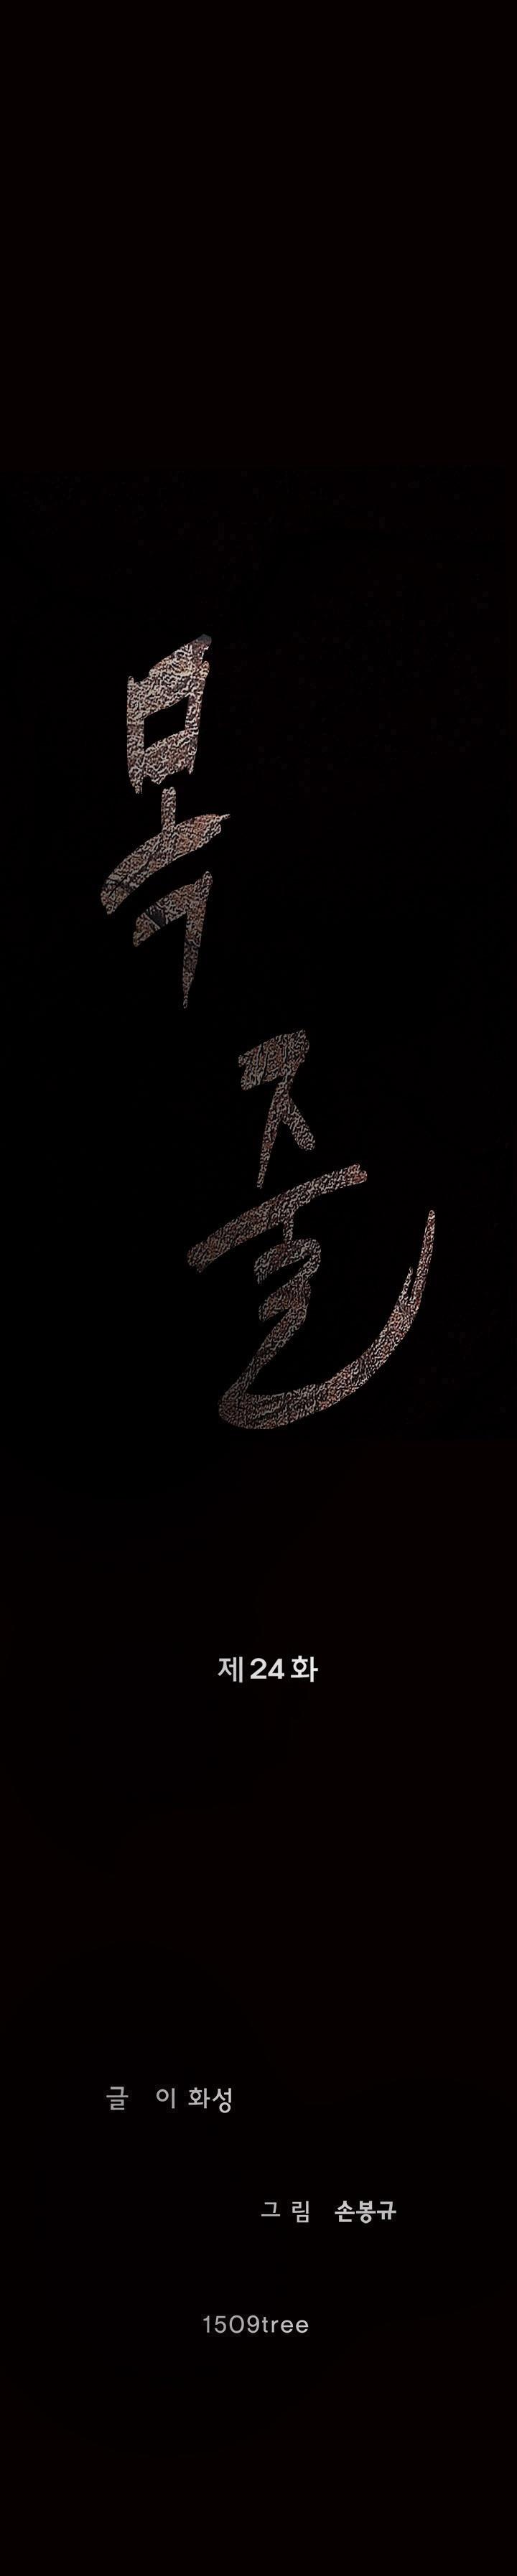 목
줄
제24화
글 이 화성
그 림 손봉규
1509tree